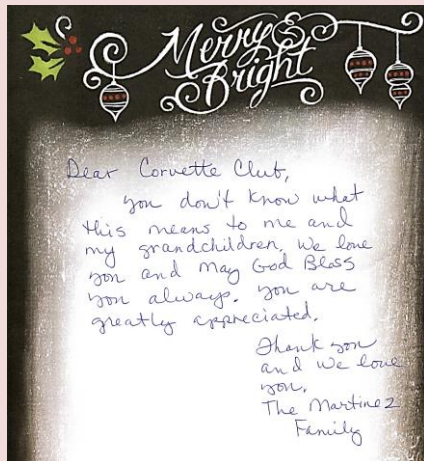 Merry &
Bright
Dear Corvette Club,
you don't know what
this means to me and
my grandchildren. We love
you and May God Bless
you always. you are
greatly appreciated.
Thank you
and we love
you.
The Martinez
Family